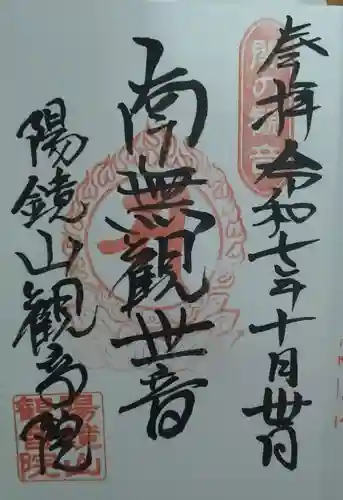 参拝 令和七年十月卅日
南無觀世音
陽鏡山観音院
陽鏡山
観音院